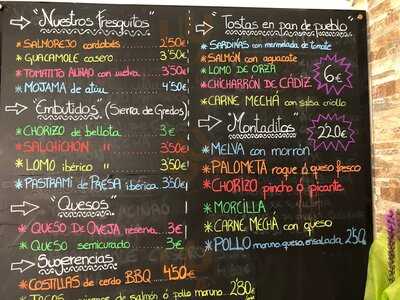 "Nuestros Fresquitos"
* SALMOREJO cordobés 2'50€
* GUACAMOLE casero 3'50€
* TOMATITO ALIÑAO con melva 3'50€
* MOJAMA de atún 4'50€
"Embutidos" (Sierra de Gredos)
* CHORIZO de bellota 3€
* SALCHICHON " 3'50€
* LOMO ibérico " 3'50€
* PASTRAMI de PRESA ibérica 3'50€
"Quesos"
* QUESO DE OVEJA reserva 3€
* QUESO semicurado 3€
Sugerencias
* COSTILLAS de cerdo BBQ 4'50€
TACOS de salmón ó pollo moruno 2'80€
"Tostas en pan de pueblo"
* SARDINAS con mermelada de tomate
* SALMÓN con aguacate
* LOMO DE ORZA
* CHICHARRÓN DE CÁDIZ
* CARNE MECHÁ con salsa criollo
6€
"Montaditos"
2'20€
* MELVA con morrón
* PALOMETA roque ó queso fresco
* CHORIZO pincho ó picante
* MORCILLA
* CARNE MECHÁ con queso
* POLLO moruno, queso, ensalada 2'50